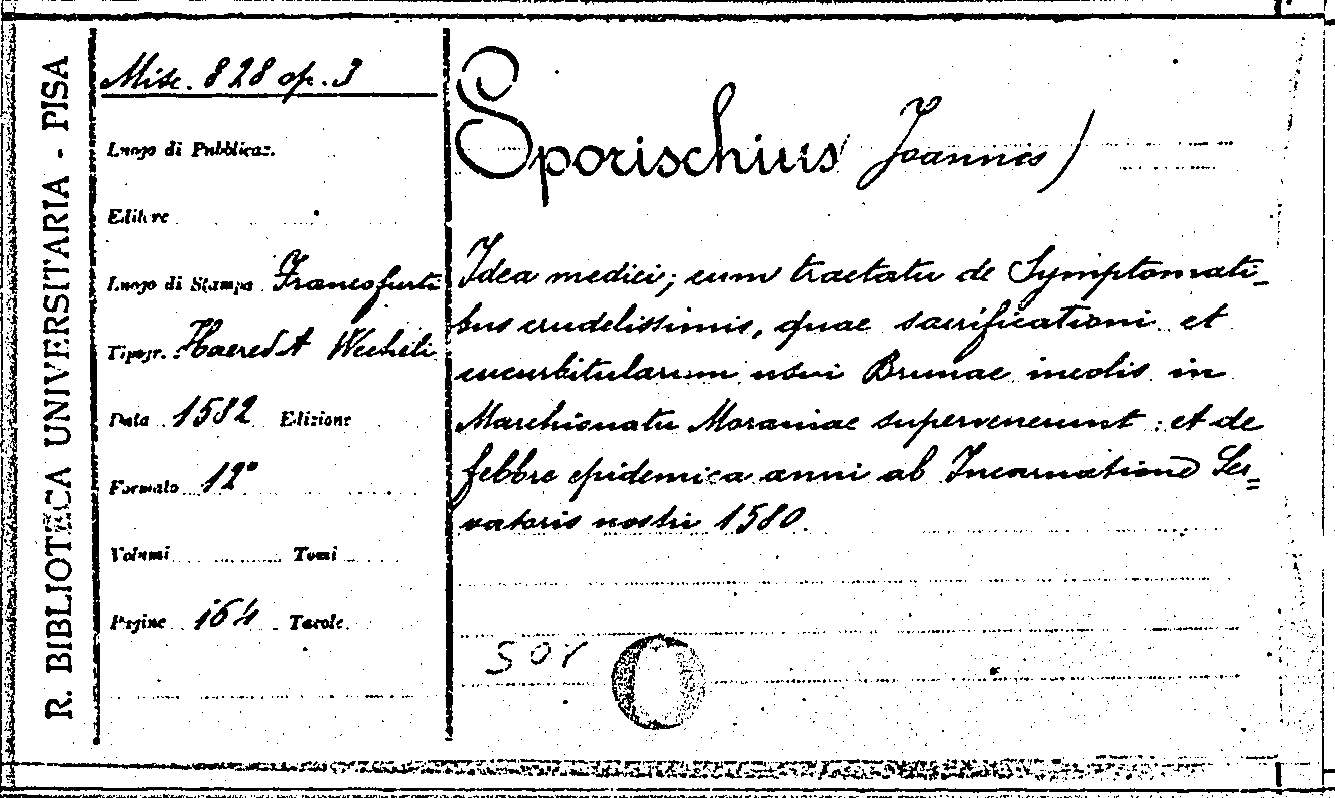 R. BIBLIOTECA UNIVERSITARIA - PISA
Misc. 828 op. 3
Luogo di Pubblicaz.
Editore
Luogo di Stampa Francofurti
Tipogr. Haered A Wecheli
Data 1582 Edizione
Formato 12°
Volumi Tomi
Pagine 164 Tavole
Sporischius Joannes)
Idea medici; cum tractatu de Symptomati-
bus crudelissimis, quae sacrificationi et
cucurbitularum usui Brunae incolis in
Marchionatu Moraviae supervenerunt: et de
febbre epidemica anni ab Incarnatione Ser=
vatoris nostri 1580.